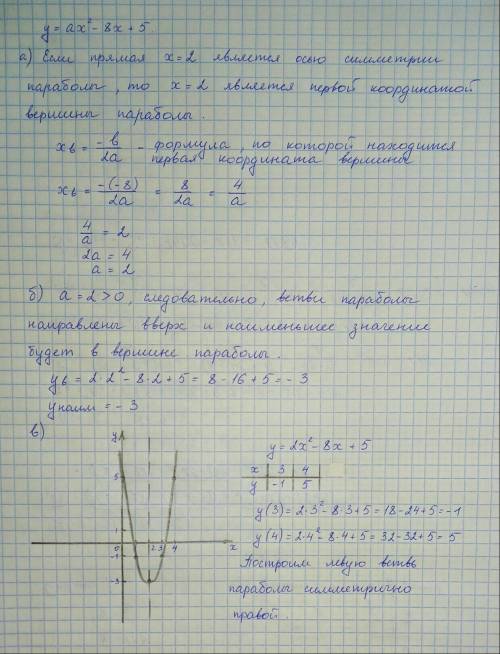 y = ax² - 8x + 5.
а) Если прямая x = 2 является осью симметрии
параболы, то x = 2 является первой координатой
вершины параболы.
xв = -b/2a - формула, по которой находится
первая координата вершины
xв = -(-8)/2a = 8/2a = 4/a
4/a = 2
2a = 4
a = 2
б) a = 2 > 0, следовательно, ветви параболы
направлены вверх и наименьшее значение
будет в вершине параболы.
yв = 2·2² - 8·2 + 5 = 8 - 16 + 5 = -3
yнаим = -3
в)
y
5
0 2 3 4 x
-1
-3
y = 2x² - 8x + 5
x 3 4
y -1 5
y(3) = 2·3² - 8·3 + 5 = 18 - 24 + 5 = -1
y(4) = 2·4² - 8·4 + 5 = 32 - 32 + 5 = 5
Построим левую ветвь
параболы симметрично
правой.